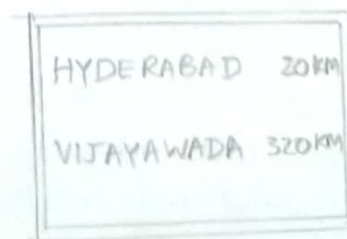 HYDERABAD 20KM
VIJAYAWADA 320KM